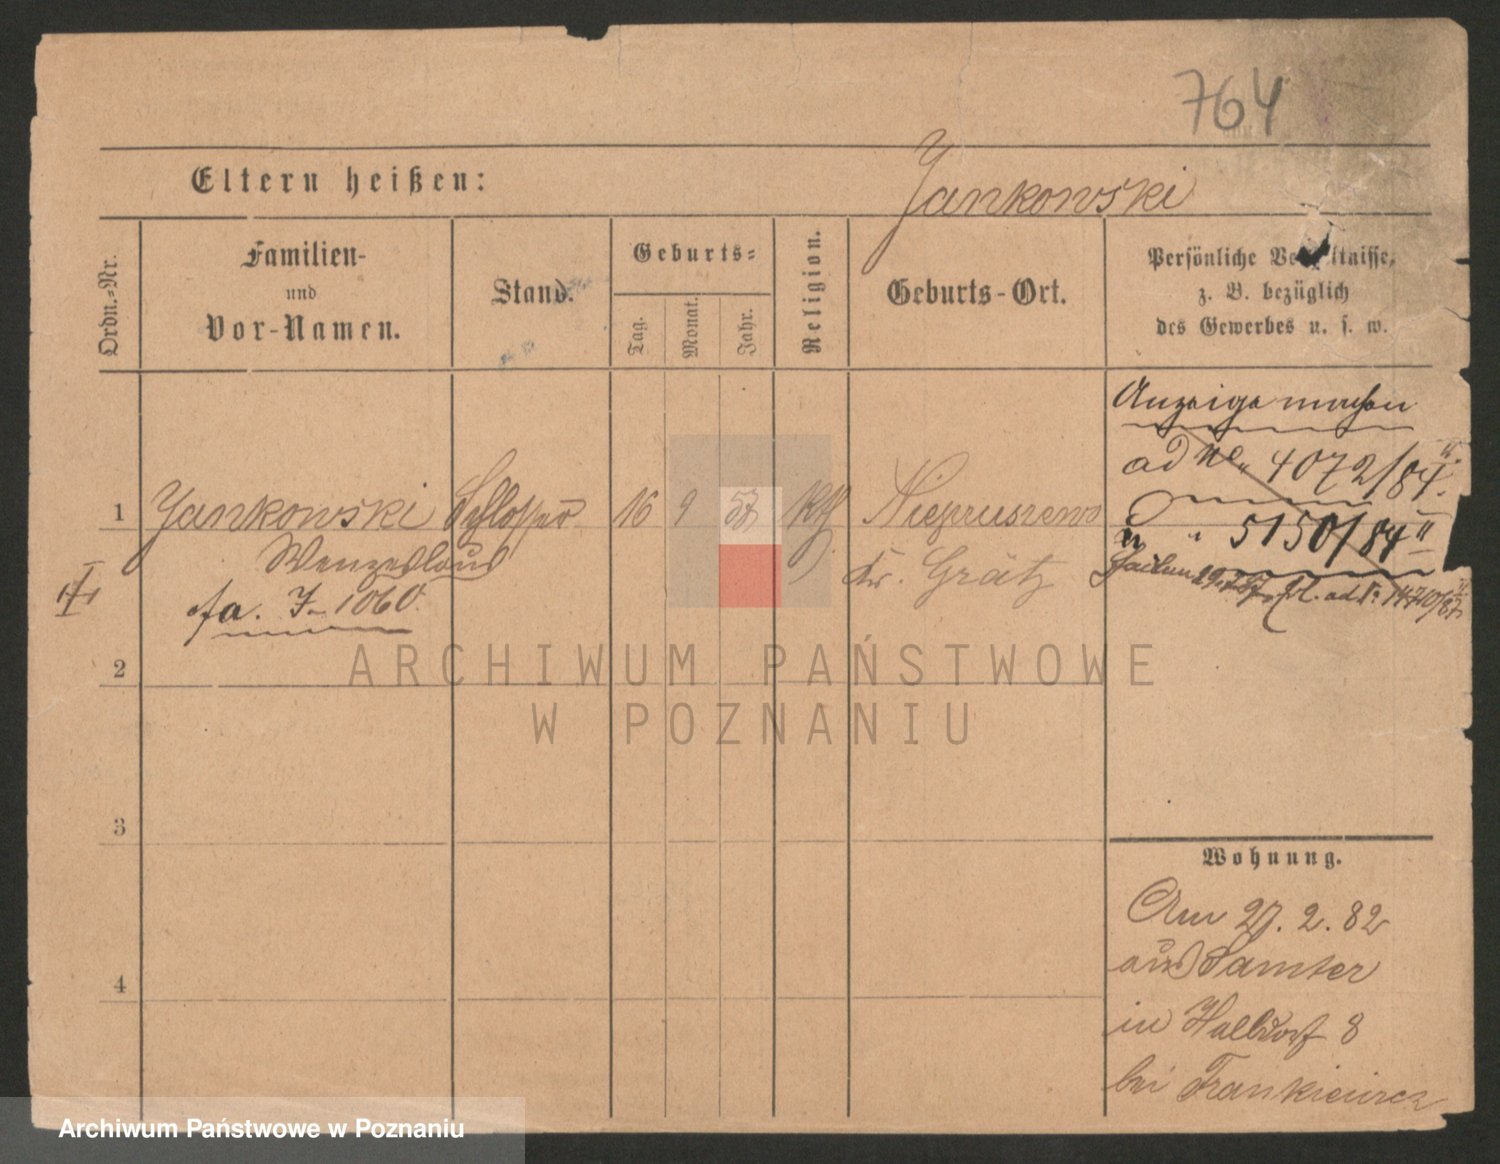 764
Eltern heißen:
Jankowski
Ordn.-Nr.
Familien-
und
Vor-Namen.
Stand.
Geburts-
Tag.
Monat.
Jahr.
Religion.
Geburts-Ort.
Persönliche Ve ltnisse,
z. B. bezüglich
des Gewerbes u. s. w.
Anzeige machen
ad No. 4072/84 II.
" " 5150/84 II
ad 1470/87
1 Jankowski Schlosser 16 9 57 kth Niepruszewo
Wenzeslaus Kr. Grätz
fa. J. 1060.
2
3
4
Wohnung.
Am 27. 2. 82
aus Samter
in Halbdorf 8
bei Frankiewicz
ARCHIWUM PAŃSTWOWE
W POZNANIU
Archiwum Państwowe w Poznaniu